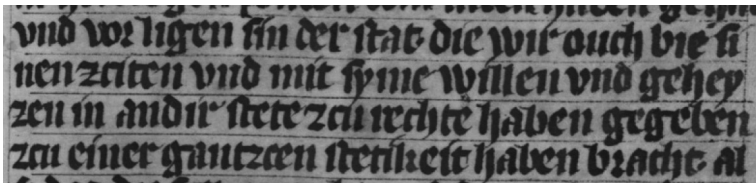 vnd vor ligen sin der stat die wir ouch bie si
nen zciten vnd mit syme willen vnd gehey
zen in andir stete zcu rechtē haben gegeben
zcu einer gantzcen stetikeit haben bracht al